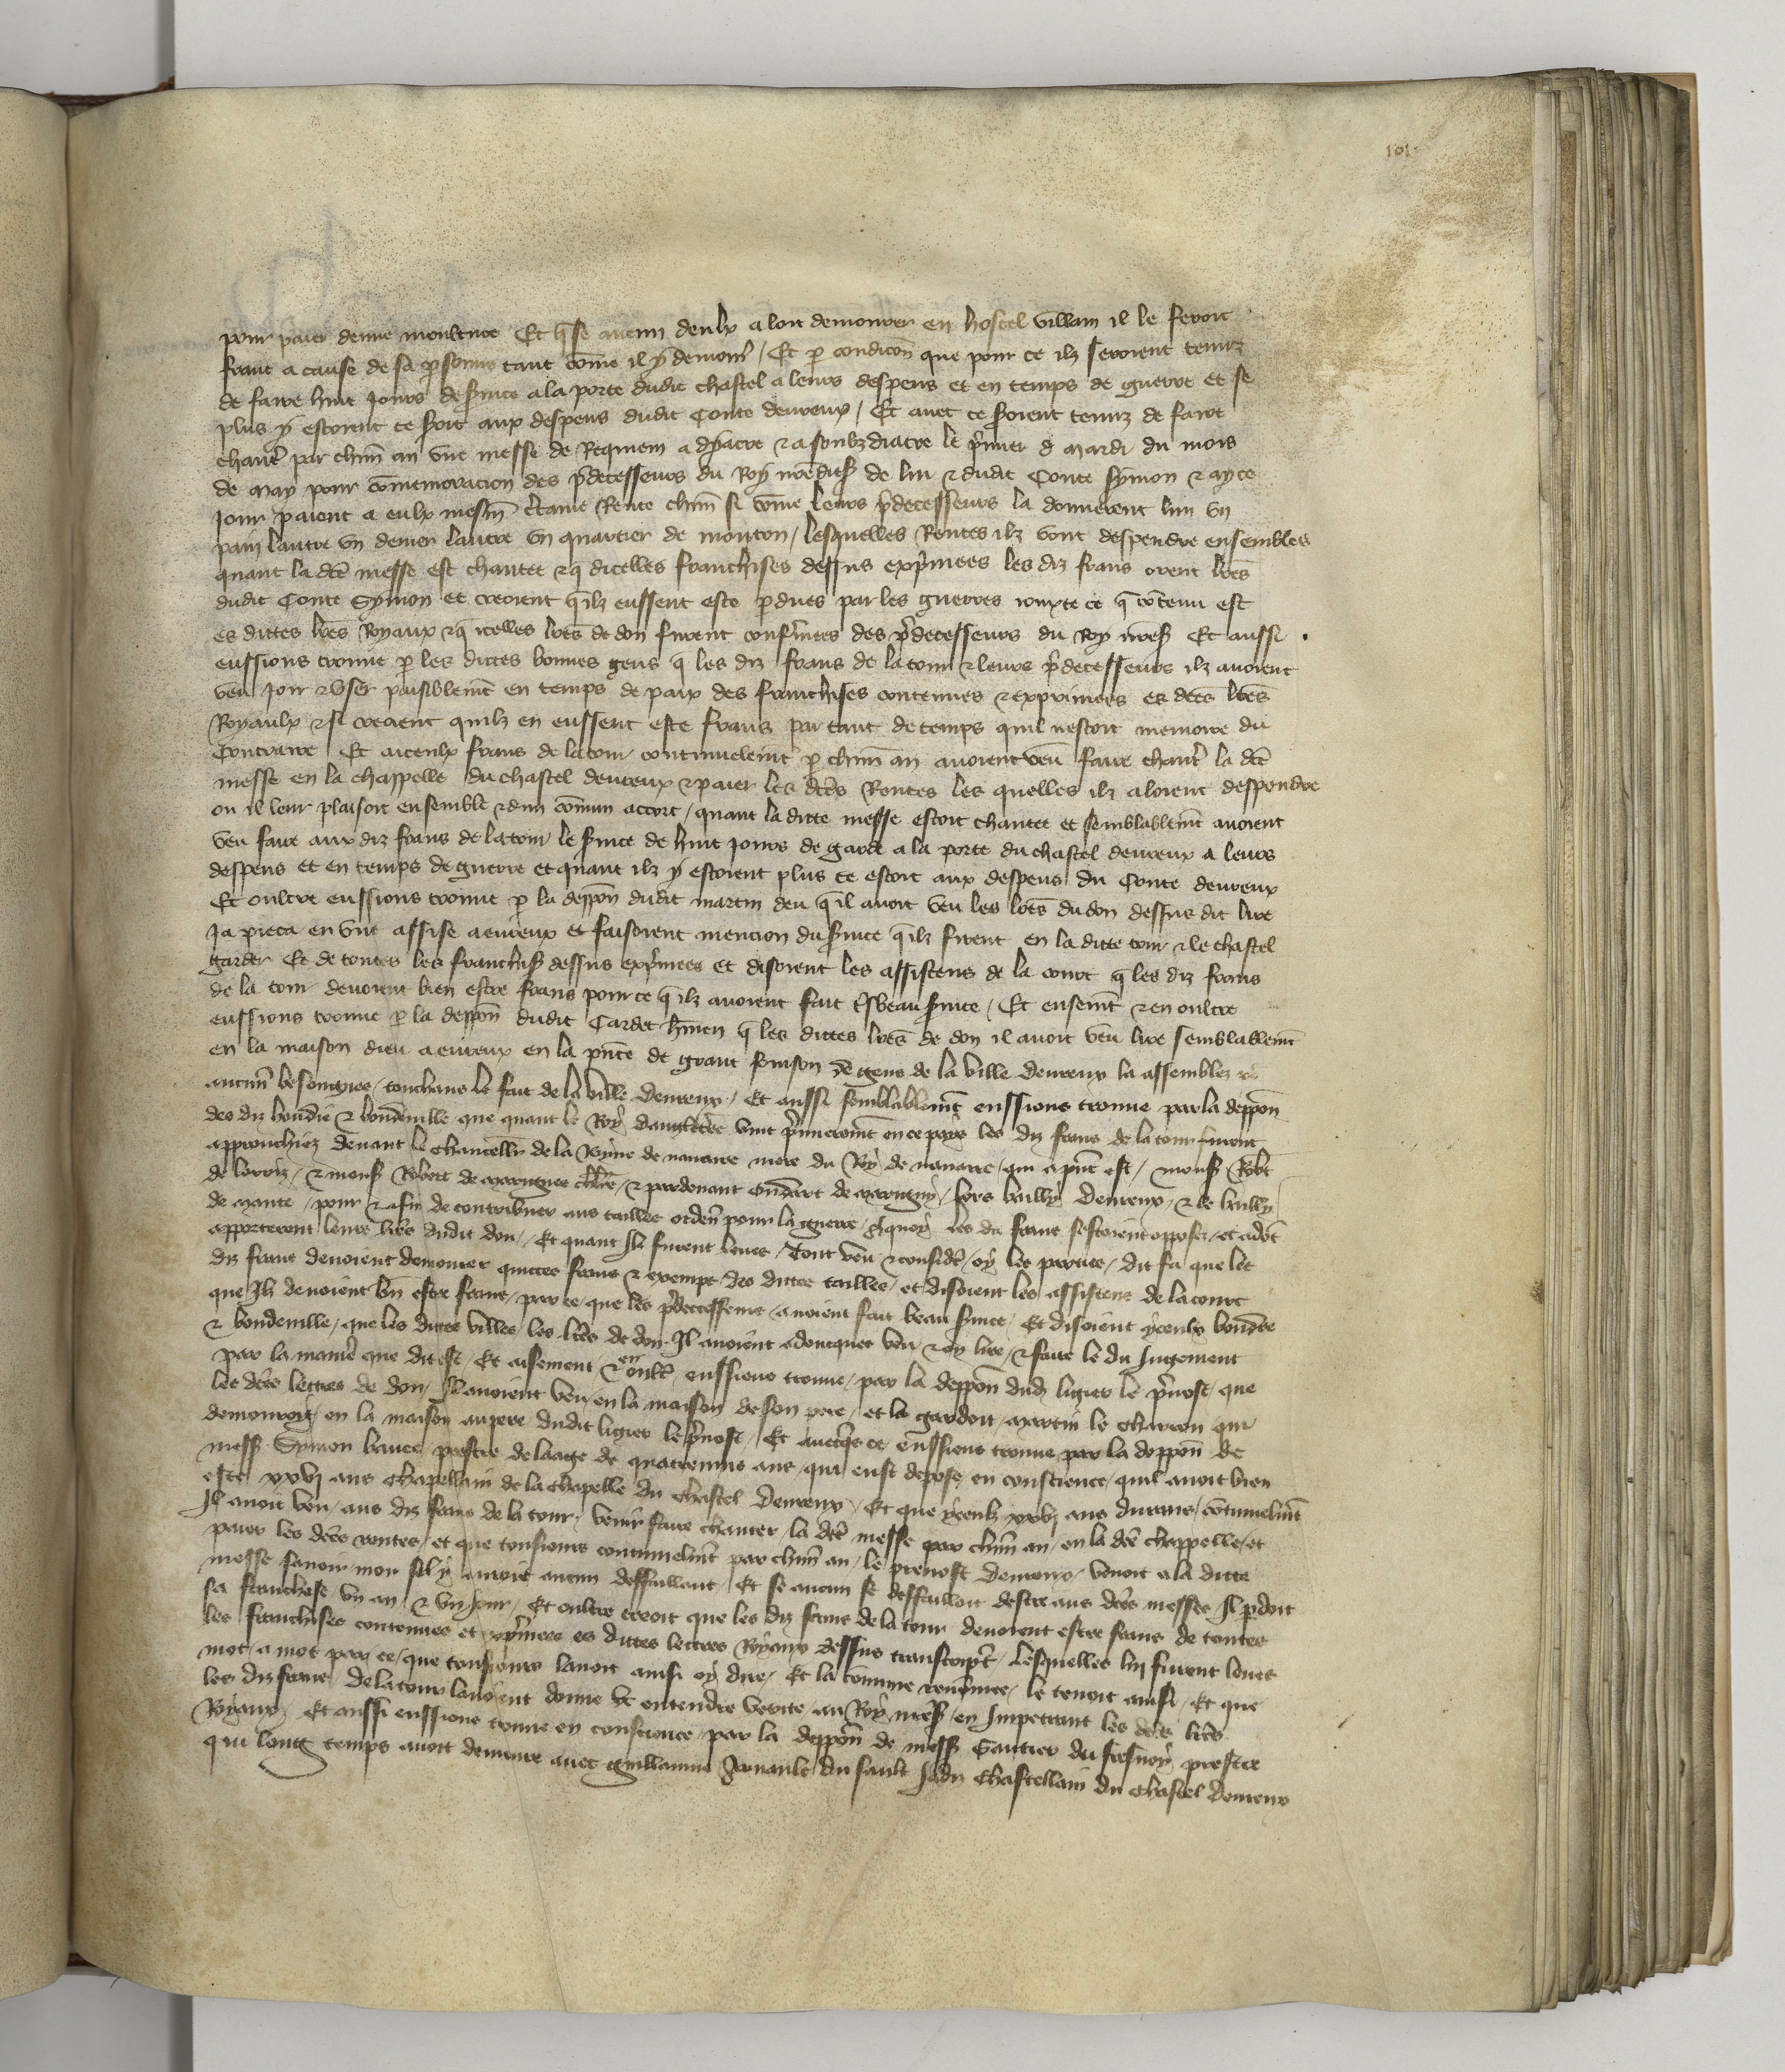 101
pour paier denue moulture Et q̄ se aucun deulx aloit demourer en hostel villain il le feroit
franc a cause de sa p̱sonne tant cōme il y demour̄ / Et p̱ condicōn que pour ce ilz seroient tenuz
de faire huit jours de s̄uice a la porte dudit chastel a leurs despens et en temps de guerre et se
plus y estoient ce soit aux despens dudit Conte deureux / Et auec ce soient tenuz de faire
chant̄ par chūn an vne messe de Requiem a dyacre & a soubzdiacre le p̄mier mardi du mois
de may pour cōmemoracion des p̄decesseurs du Roy nr̄edit s̄ de lui & dudit Conte Symon & a yce
jour paient a eulx mesm̄ c̄taine Rente chūn si cōme leurs p̄decesseurs la donnerent lun vn
pain lautre vn denier lautre vn quartier de mouton / lesquelles Rentes ilz vont despendre ensembles
quant la dc̄e messe est chantee & q̄ dicelles franchises dessus exp̄mees les diz frans orent lr̄es
dudit Conte Symon et creoient q̄ ilz eussent este p̱dues par les guerres iouxte ce q̄ cōtenu est
es dittes lr̄es Royaux & q̄ icelles lr̄es de don furent conf̄mees des p̄decesseurs du Roy nr̄es̄ Et aussi
eussions trouue p̱ les dictes bonnes gens q̄ les diz frans de la tour & leurs p̄decesseurs ilz auoient
veu joir & vser paisiblemt̄ en temps de paix des franchises contenues & exprimees es dc̄es lr̄es
Royaulx & si creoient quilz en eussent este frans par tant de temps quil nestoit memoire du
Contraire Et aiceulx frans de la tour continuelemt̄ p̱ chūn an auoient veu faire chant̄ la dc̄e
messe en la chappelle du chastel deureux & paier les dc̄es Rentes les quelles ilz aloient despendre
ou il leur plaisoit ensemble & dun cōmun accort / quant la ditte messe estoit chantee et semblablemt̄ auoient
veu faire aux diz frans de la tour le s̄uice de huit jours de garde a la porte du chastel deureux a leurs
despens et en temps de guerre et quant ilz y estoient plus ce estoit aux despens du Conte deureux
Et oultre eussions trouue p̱ la depp̄on dudit martin deu q̄ il auoit veu les lr̄es du don dessus dit lire
Ja pieca en vne assise a eureux et faisoient mencion du s̄uice q̄ ilz firent en la ditte tour & le chastel
garder Et de toutes les franchis̄ dessus exp̄mees et disoient les assistens de la court q̄ les diz frans
de la tour deuoient bien estre frans pour ce q̄ ilz auoient fait t̄s beau s̄uice / Et ensemt̄ & en oultre
eussions trouue p̱ la depp̄on dudit Cardet q̄ les dittes lr̄es de don il auoit veu lire semblablemt̄
en la maison dieu a eureux en la p̄nce de grant fouison de gens de la ville deureux la assemblez
aucun̄ besongnes / touchans le fait de la ville deureux / Et aussi semblablemt̄ eussions trouue par la depp̄on
des diz boudie & boudeuille que quant le Roy dangleterre vint p̄mieremt̄ en ce pays les diz frans de la tour furent
approuchiez deuant le chancellr̄ de la Royne de nauarre mere du Roy de nauarre / qui a p̄nt est / mons̄ Robt̄
de lorriz / & mons̄ Robert de marigner chl̄r / & par deuant oudart de marigny / lors bailly deureux / & le bailly
de mante / pour & afin de contribuer aus tailles orden̄ pour la guerre / aquoy les diz frans sestoient opposez / et adōt
apporterent leurs lr̄es dudit don / Et quant Ilz furent leues / Tout veu & consid̄e / oy les parties / dit fu que les
diz frans deuoient demourer quittes frans & exemps des dittes tailles / et disoient les assistens de la court
que Ilz deuoient bn̄ estre frans / par ce / que les p̄decesseurs auoient fait beau s̄uice / Et disoient yceulx boudie
& boudeuille / que les dittes villes les lr̄es de don Il auoient adoncques veu & oy lire / & faire le du Jugement
par la manie᷑ que dit est / Et aisement & en oult̄ / eussions trouue / par la depp̄on dud̄ ligier le p̄uost / que
les dc̄es lettres de don / Il auoient veu en la maison de son pere / et la gardoit martin le charron qui
demouroit / en la maison au pere dudit ligier le p̄uost / Et auecq̄s ce eussions trouue par la depp̄on de
mess̄ Symon prestre de laage de quatreuins ans / qui eust depose en conscience / quil auoit bien
este xxvj ans Chapellain de la Chapelle du Chastel deureux / Et que yceulx xxvj ans durans / cōtinuelmt̄
Il auoit veu / aus diz frans de la tour / venir faire chanter / la dc̄e messe par chūn an / en la dc̄e chappelle / et
paier les dc̄es rentes / et que tousiours continuelmt̄ par chūn an / le preuost deureux / venoit a la ditte
messe sauoir mon sil y auoit aucun deffaillant / Et se aucun se deffailloit destre aus dc̄es messes Il p̱doit
sa franchise vn an & vn Jour / Et oultre creoit que les diz frans de la tour deuoient estre frans de toutes
les franchises contenues et exp̄mees es dittes lettres Royaux dessus transcrip̄t / Lesquelles luy furent leues
mot a mot par ce / que tousiours lauoit ainsi oy dire / Et la cōmune renōmee / le tenoit ainsi / Et que
les diz frans de la tour lauoient donne a entendre verite / au Roy nr̄es̄ / en Impetrant les dc̄es lr̄es
Royaux / Et aussi eussions trouue en conscience / par la depp̄on de mess̄ Gautier du fresnoy prestre
qui long temps auoit demoure auec guillaume Jadiz Chastellain du Chastel deureux